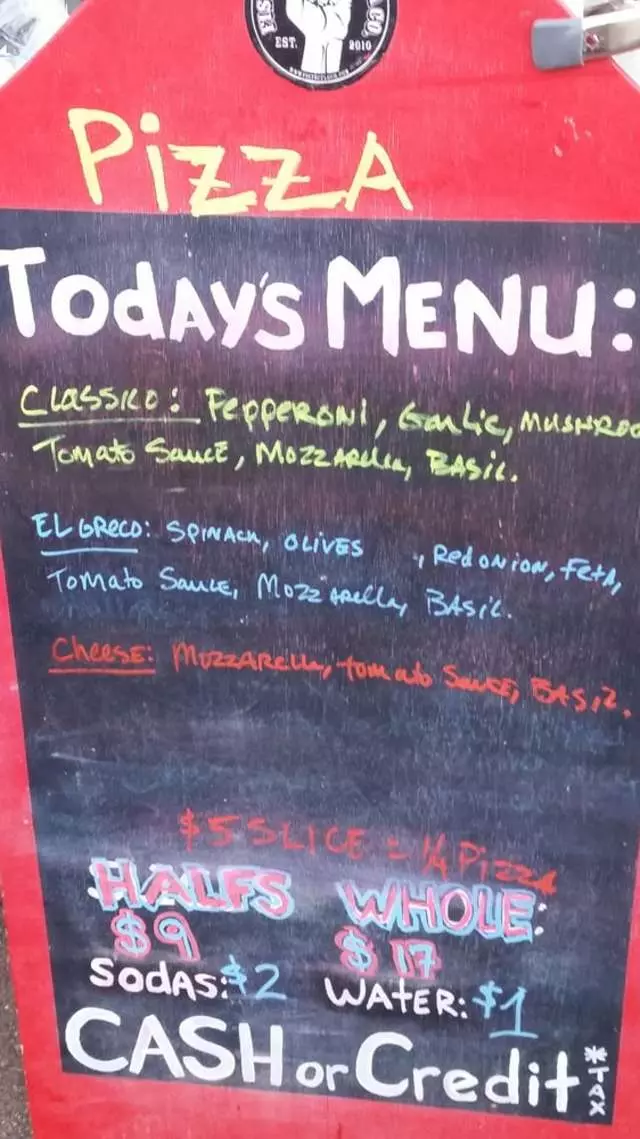 EST. 2010
PiZZA
TODAY'S MENU:
CLASSICO: PEPPERONI, GARLIC, MUSHROO
TOMATO SAUCE, MOZZARELLA, BASIL.
EL GRECO: SPINACH, OLIVES , RED ONION, FETA,
TOMATO SAUCE, MOZZARELLA, BASIL.
CHEESE: MOZZARELLA, TOMATO SAUCE, BASIL.
$5 SLICE = 1/4 PIZZA
HALFS WHOLE:
$9 $17
SODAS: $2 WATER: $1
CASH or Credit *TAX